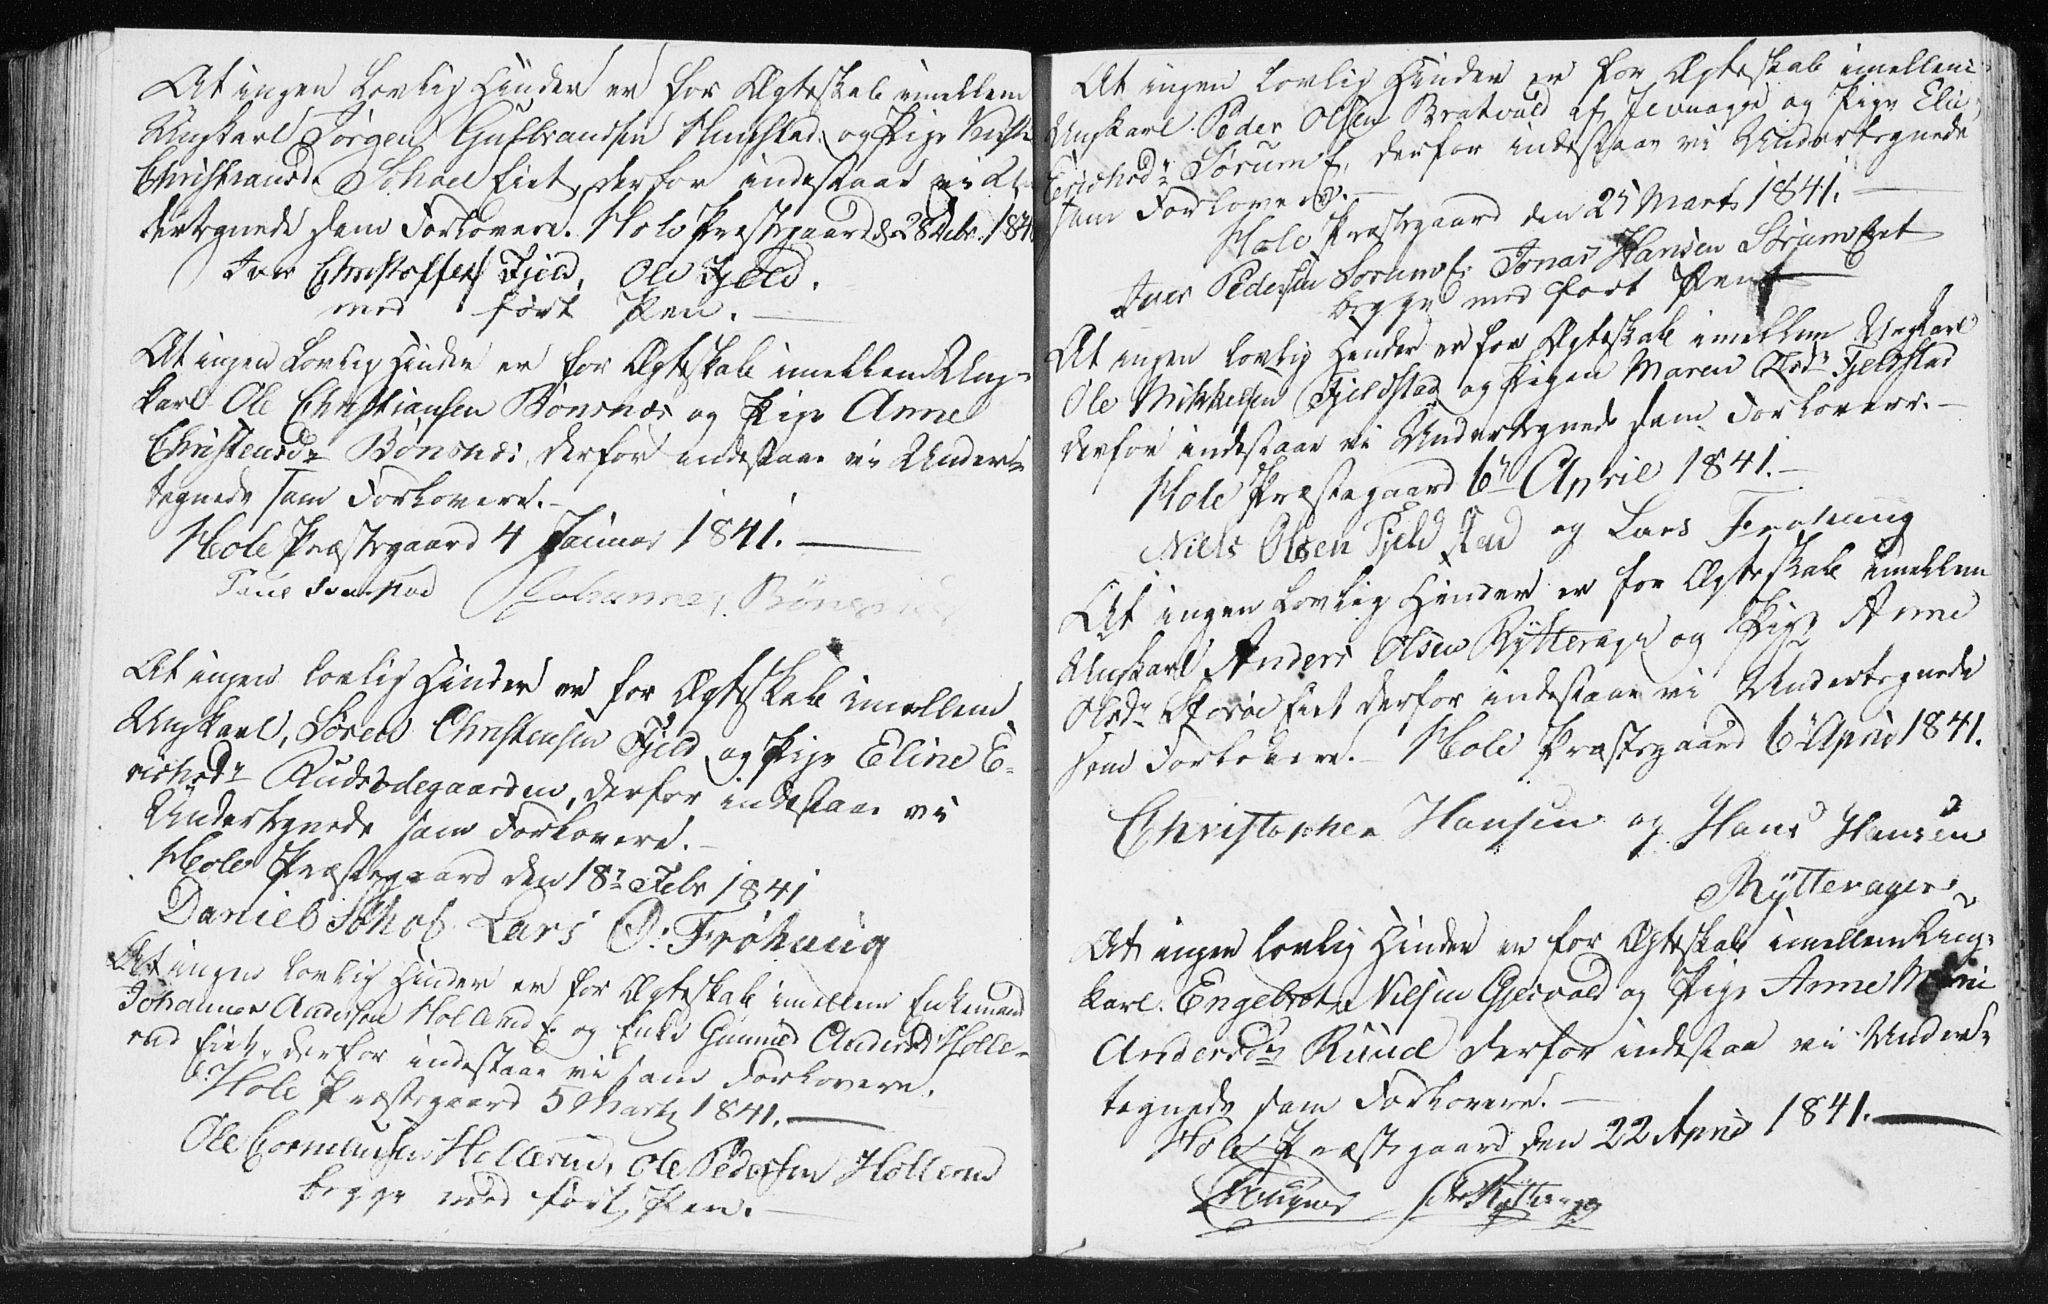 At ingen Lovlig Hinder er for Ægteskab imellem
Ungkarl Jørgen Gulbrandsen og Pige
Christiansd. Schoel Eiet, derfor indestaar vi Un
dertegnede som Forlovere. Hole Præstegaard d. 28 Debr. 184
Iver Christoffers Fjeld, Ole Fjeld.
med ført Pen.
At ingen Lovlig Hinder er for Ægteskab imellem Ung-
karl Ole Christiansen Bønsnæs og Pige Anne
Christensdr Bønsnæs, derfor indestaar vi Under-
tegnede som Forlovere.
Hole Præstegaard 4 Januar 1841.
Johannes Bønsnæs
At ingen lovlig Hinder er for Ægteskab imellem
Ungkarl, Søren Christensen Fjeld og Pige Eline E-
richsdr Rudsødegaarden, derfor indestaar vi
Undertegnede som Forlovere.
Hole Præstegaard den 18de Febr 1841
Daniel Lars O: Frøhaug
At ingen lovlig Hinder er for Ægteskab imellem Enkemand
Johannes Andersen Hollerud E. og Enke Gunnild Andersd. Holle-
rud Eiet, derfor indestaar vi som Forlovere.
Hole Præstegaard 5 Marts 1841.
Ole Corneliussen Hollerud, Ole Pedersen Hollerud
begge med ført Pen.
At ingen lovlig Hinder er for Ægteskab imellem
Ungkarl Peder Olsen Bratvald af Jevnager og Pige Eli
Erichsdr Sørum E, derfor indestaar vi Undertegnede
som Forlovere.
Hole Præstegaard den 25 Marts 1841.
Iver Pedersen Sørum E. Jonas Hansen Sørum Eiet
begge med ført Pen
At ingen lovlig Hinder er for Ægteskab imellem Ungkarl
Ole Mikkelsen Fjeldstad og Pigen Maren Olsdr Fjeldstad
derfor indestaar vi Undertegnede som Forlovere.
Hole Præstegaard 6te April 1841.
Niels Olsen Fjeldstad og Lars Frøhaug
At ingen Lovlig Hinder er for Ægteskab imellem
Ungkarl Anders Olsen Rytterager og Pige Anne
Olsdr Storøe Eiet derfor indestaar vi Undertegnede
som Forlovere. Hole Præstegaard 6te April 1841.
Christopher Hansen og Hans Hansen
Rytterager
At ingen lovlig Hinder er for Ægteskab imellem Ung-
karl Engebret Nilsen Gjesvold og Pige Anne Marie
Andersdr Ruud derfor indestaa vi Under-
tegnede som Forlovere.
Hole Præstegaard den 22 April 1841.
Rytterager